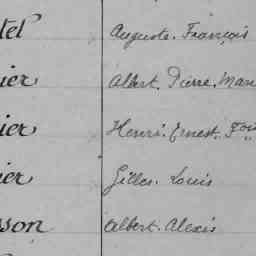 tel Auguste. François
ier Albert. Pierre. Mar
ier Henri. Ernest. Fois
ier Gilles. Louis
sson Albert. Alexis